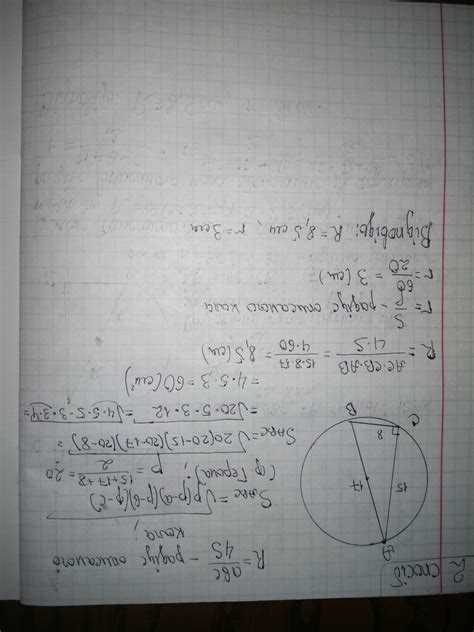 2 спосіб
R = abc/4S – радіус описаного
кола;
S_ABC = √p(p-a)(p-b)(p-c)
(ф. Герона); p = (15+17+8)/2 = 20
S_ABC = √20(20-15)(20-17)(20-8) =
= √20·5·3·12 = √4·5·5·3·3·4 =
= 4·5·3 = 60 (см²)
R = AC·CB·AB/4·S = 15·8·17/4·60 = 8,5 (см)
r = S/p – радіус описаного кола
r = 60/20 = 3 (см)
Відповідь: R = 8,5 см, r = 3 см
A
15
17
8
C
B